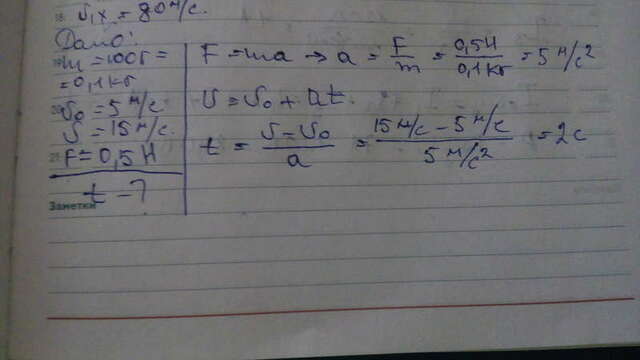 18 υ₁ₓ = 80 м/с.
Дано:
m = 100г =
= 0,1 кг
υ₀ = 5 м/с
υ = 15 м/с.
21 F = 0,5 Н
t - ?
Заметки
F = ma → a = F/m = 0,5Н/0,1кг = 5 м/с²
υ = υ₀ + at.
t = υ - υ₀/a = 15 м/с - 5 м/с/5 м/с² = 2с